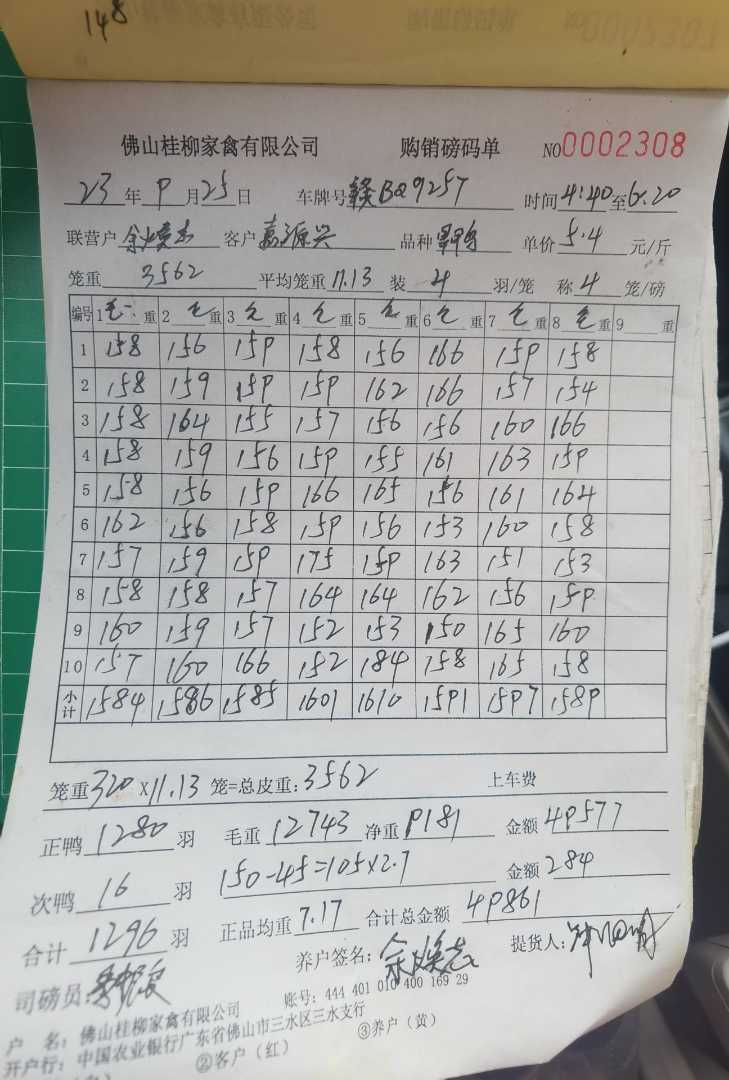 148
佛山桂柳家禽有限公司 购销磅码单 NO0002308
23年9月25日 车牌号赣BQ9257 时间4:40至6.20
联营户余焕志 客户嘉源兴 品种 单价5.4元/斤
笼重3562 平均笼重11.13装4羽/笼 称4笼/磅
编号 1毛重 2毛重 3毛重 4毛重 5毛重 6毛重 7毛重 8毛重 9重
1 158 156 159 158 156 166 159 158
2 158 159 159 159 162 166 157 154
3 158 164 155 157 156 156 160 166
4 158 159 156 159 155 161 163 159
5 158 156 159 166 165 156 161 164
6 162 156 158 159 156 153 160 158
7 157 159 159 175 159 163 151 153
8 158 158 157 164 164 162 156 159
9 160 159 157 152 153 150 165 160
10 157 160 166 152 184 158 165 158
小计 1584 1586 1585 1601 1610 1591 1597 1589
笼重320×11.13笼=总皮重:3562 上车费
正鸭1280羽 毛重12743净重9181 金额49577
次鸭16羽 150-45=105×2.7 金额284
合计1296羽 正品均重7.17 合计总金额49861
司磅员: 养户签名:余焕志 提货人:
户 名:佛山桂柳家禽有限公司 账号:444 401 010 400 169 29
开户行:中国农业银行广东省佛山市三水区三水支行
②客户(红) ③养户(黄)